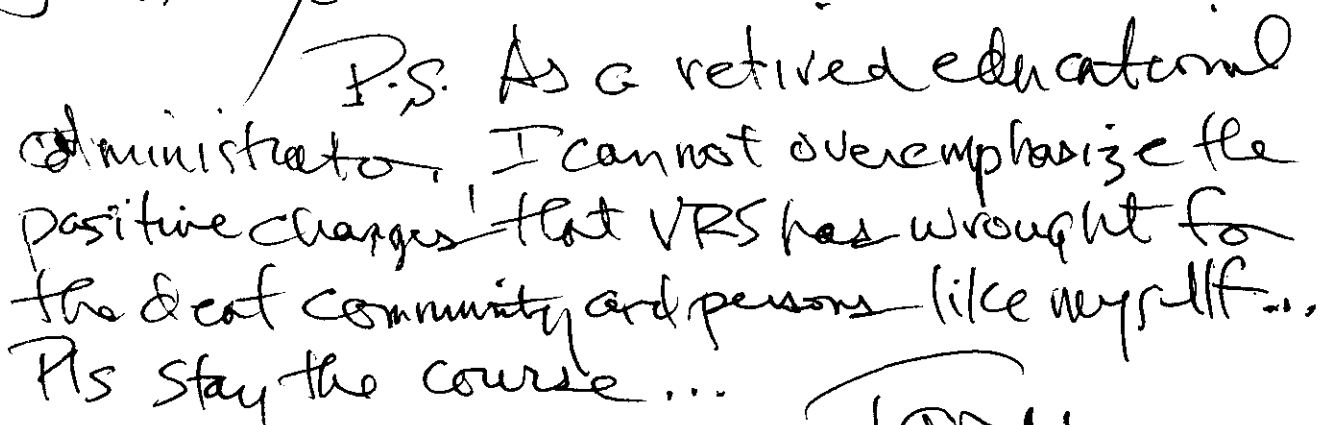 P.S. As a retired educational
administrator, I cannot overemphasize the
positive changes that VRS has wrought for
the deaf community and persons like myself...
Pls stay the course...